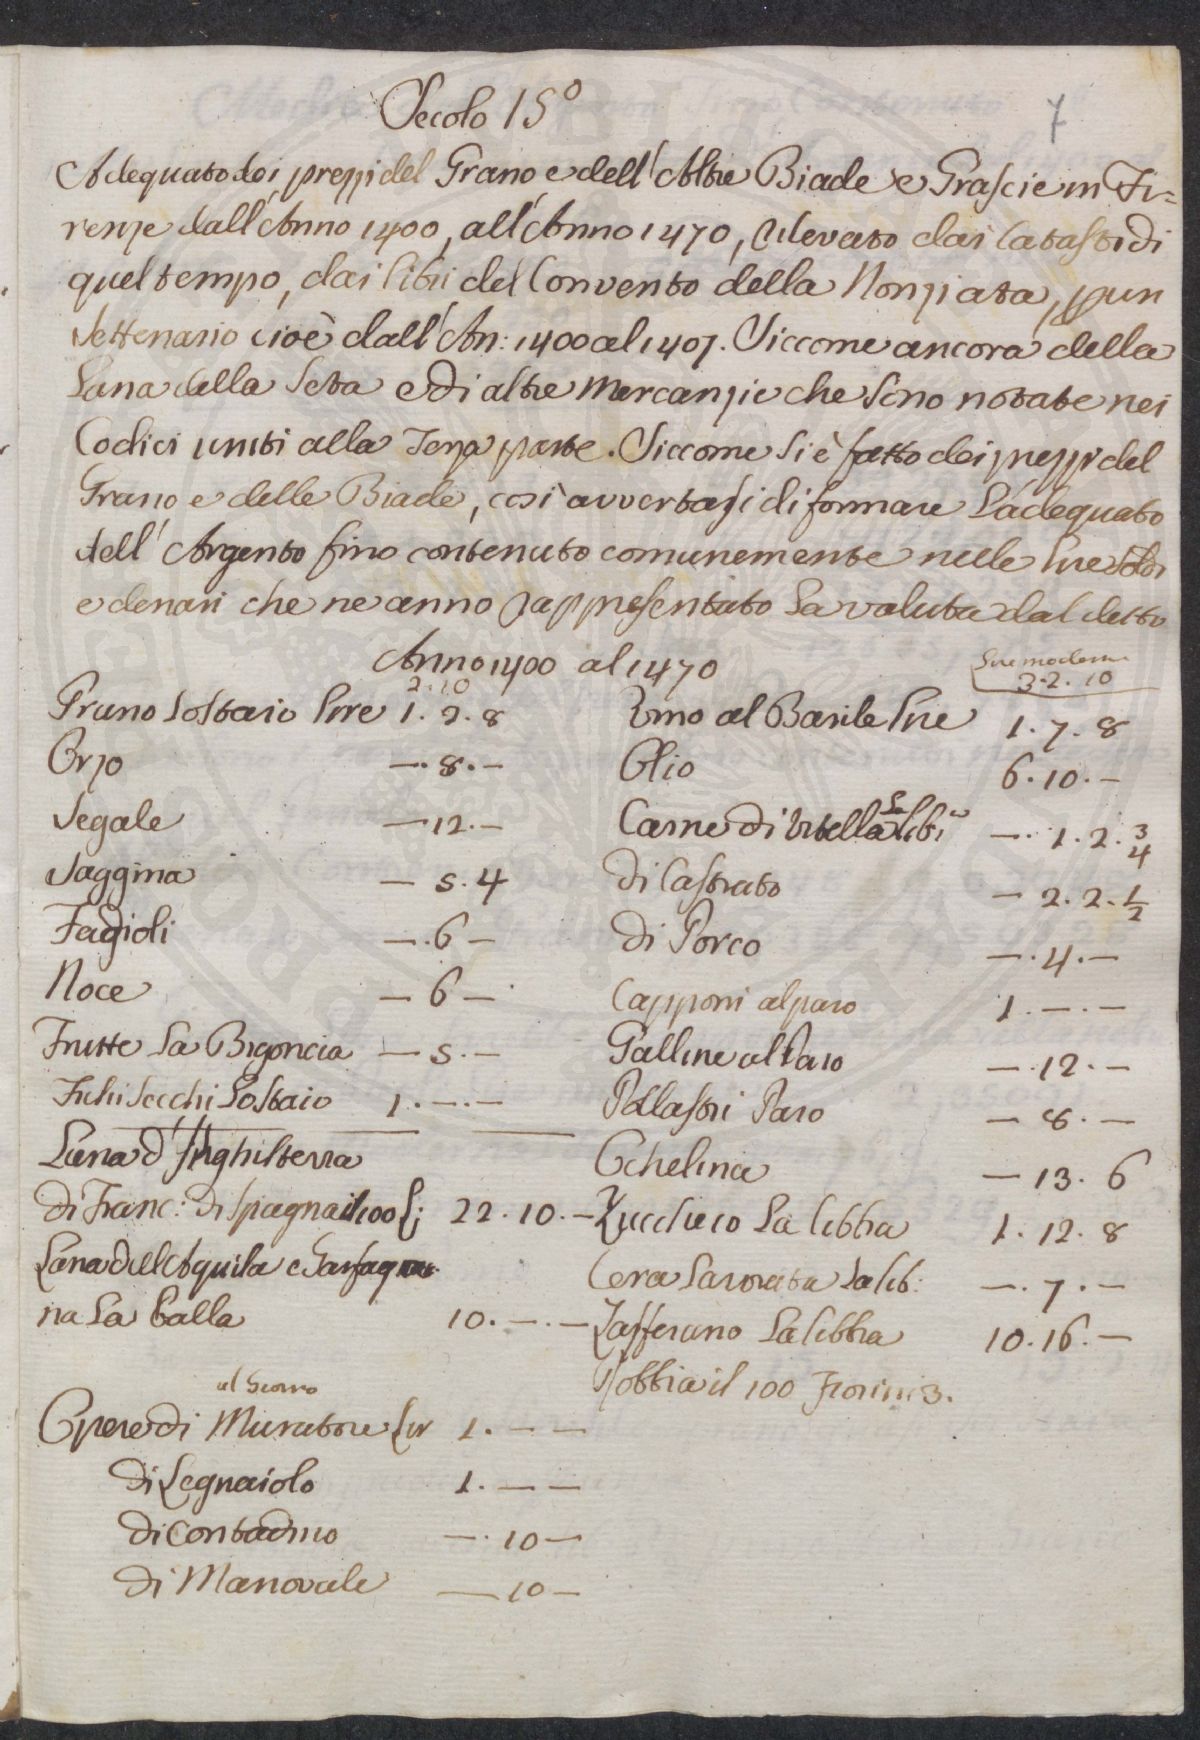 Secolo 15º
7
Adequato dei prezzi del Grano e dell'Altre Biade e Grascie in Fi=
renze dall'Anno 1400, all'Anno 1470, rilevato dai Catasti di
quel tempo, dai libri del Convento della Nonziata, p un
Settenario cioè dall'An: 1400 al 1407. Siccome ancora della
Lana della Seta e di altre Mercanzie che sono notate nei
Codici uniti alla Terza parte. Siccome si è fatto dei prezzi del
Grano e delle Biade, così avvertasi di formare L'adequato
dell'Argento fino contenuto comunemente nelle lire soldi
e denari che ne anno rappresentato La valuta dal detto
Anno 1400 al 1470
Lire modern
3.2.10
2.10
Grano Lo Staio Lire 1.2.8
Orzo —.8.—
Segale —12.—
Saggina — 5.4
Fagioli —.6—
Noce — 6 —
Frutte La Bigoncia — 5.—
Fichi Secchi Lo Staio 1.—.—
Lana d'Inghilterra
di Franc: di Spagna il 100 L: 22.10.—
Lana dell'Aquila e Garfagna
na La balla 10.—.—
al Giorno
Opere di Muratore Lir 1.— —
di Legnaiolo 1.— —
di Contadino —.10—
di Manovale —10—
Vino al Barile Lire 1.7.8
Olio 6.10.—
Carne di Vitella La Lib: —.1.2.3/4
di Castrato — 2.2.1/2
di Porco —.4.—
Capponi al paro 1.—.—
Galline al Paro —.12.—
Pollastri Paro — 8.—
Ochelina — 13.6
Zucchero La libbra 1.12.8
Cera Lavorata La lib: —.7.—
Zafferano La libbra 10.16.—
Robbia il 100 Fiorini 3.